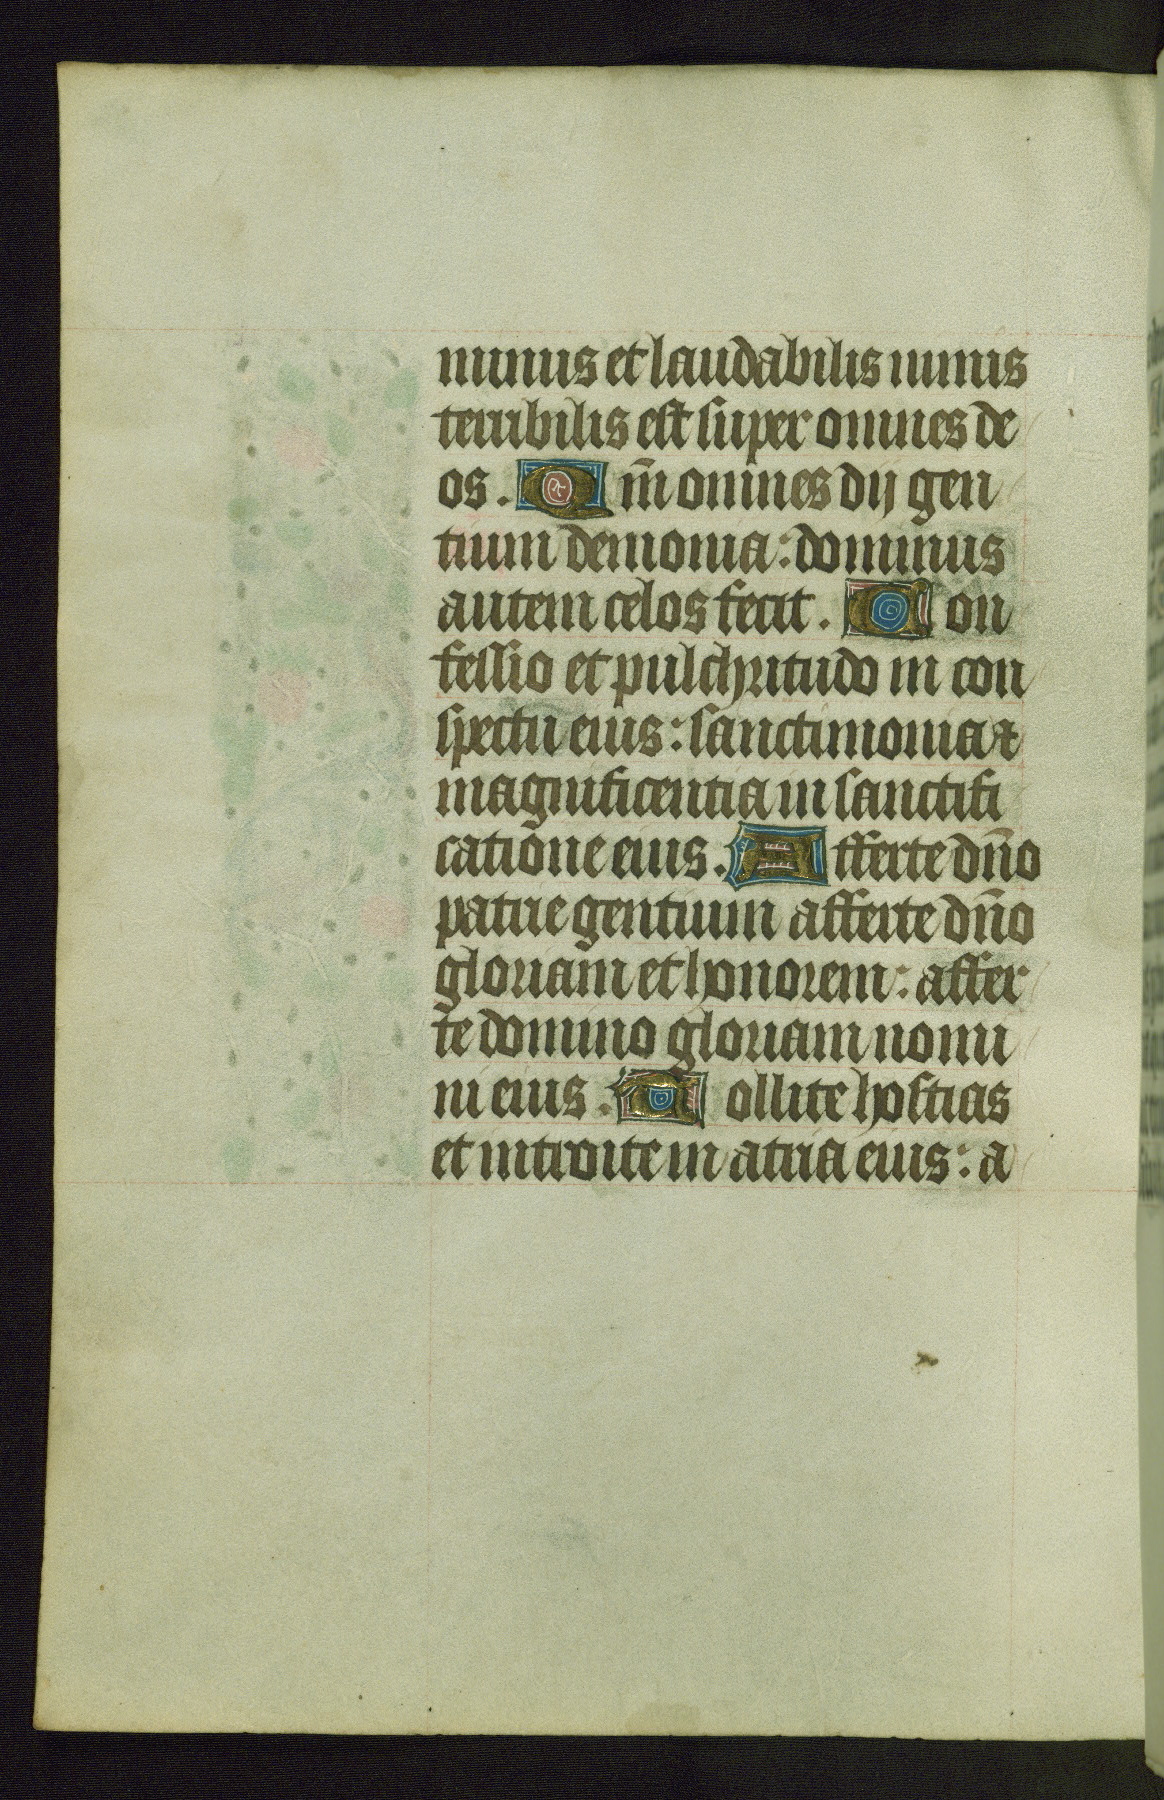 minus et laudabilis nimis
terribilis est super omnes de
os. Qm̄ omnes dij gen
tium demonia: dominus
autem celos fecit. Con
fessio et pulchritudo in con
spectu eius: sanctimonia ⁊
magnificentia in sanctifi
catione eius. Afferte dn̄o
patrie gentium afferte dn̄o
gloriam et honorem: affer
te domino gloriam nomi
ni eius. Tollite hostias
et introite in atria eius: a